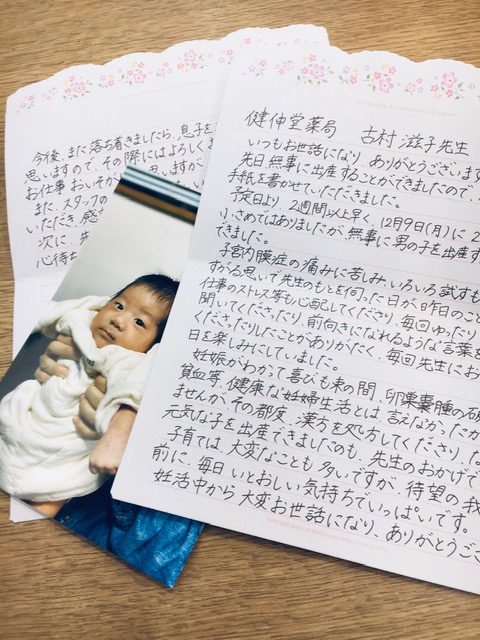 今後、また落ち着きましたら、息子を
思いますので、その際にはよろしく
お仕事おいそがし 思いますが
また、スタッフの
いただき、感
次に、先
心待ち
健伸堂薬局 古村滋子先生
いつもお世話になり、ありがとうございます
先日無事に出産することができましたので、
手紙を書かせていただきました。
予定日より、2週間以上早く、12月9日(月)に2
小さめではありましたが、無事に男の子を出産す
できました。
子宮内膜症の痛みに苦しみ、いろいろ試すも
すがる思いで先生のもとを伺った日が昨日のこと
仕事のストレス等も心配してくださり、毎回ゆったり
聞いてくださったり、前向きになれるような言葉を
くださったりしたことがありがたく、毎回先生にお
日を楽しみにしていました。
妊娠がわかって喜びも束の間、卵巣嚢腫の破
貧血等、健康な妊婦生活とは言えなかったか
ませんが、その都度、漢方を処方してくださり、な
元気な子を出産できましたのも、先生のおかげで
子育ては、大変なことも多いですが、待望の我
前に、毎日いとおしい気持ちでいっぱいです。
妊活中から大変お世話になり、ありがとうござ